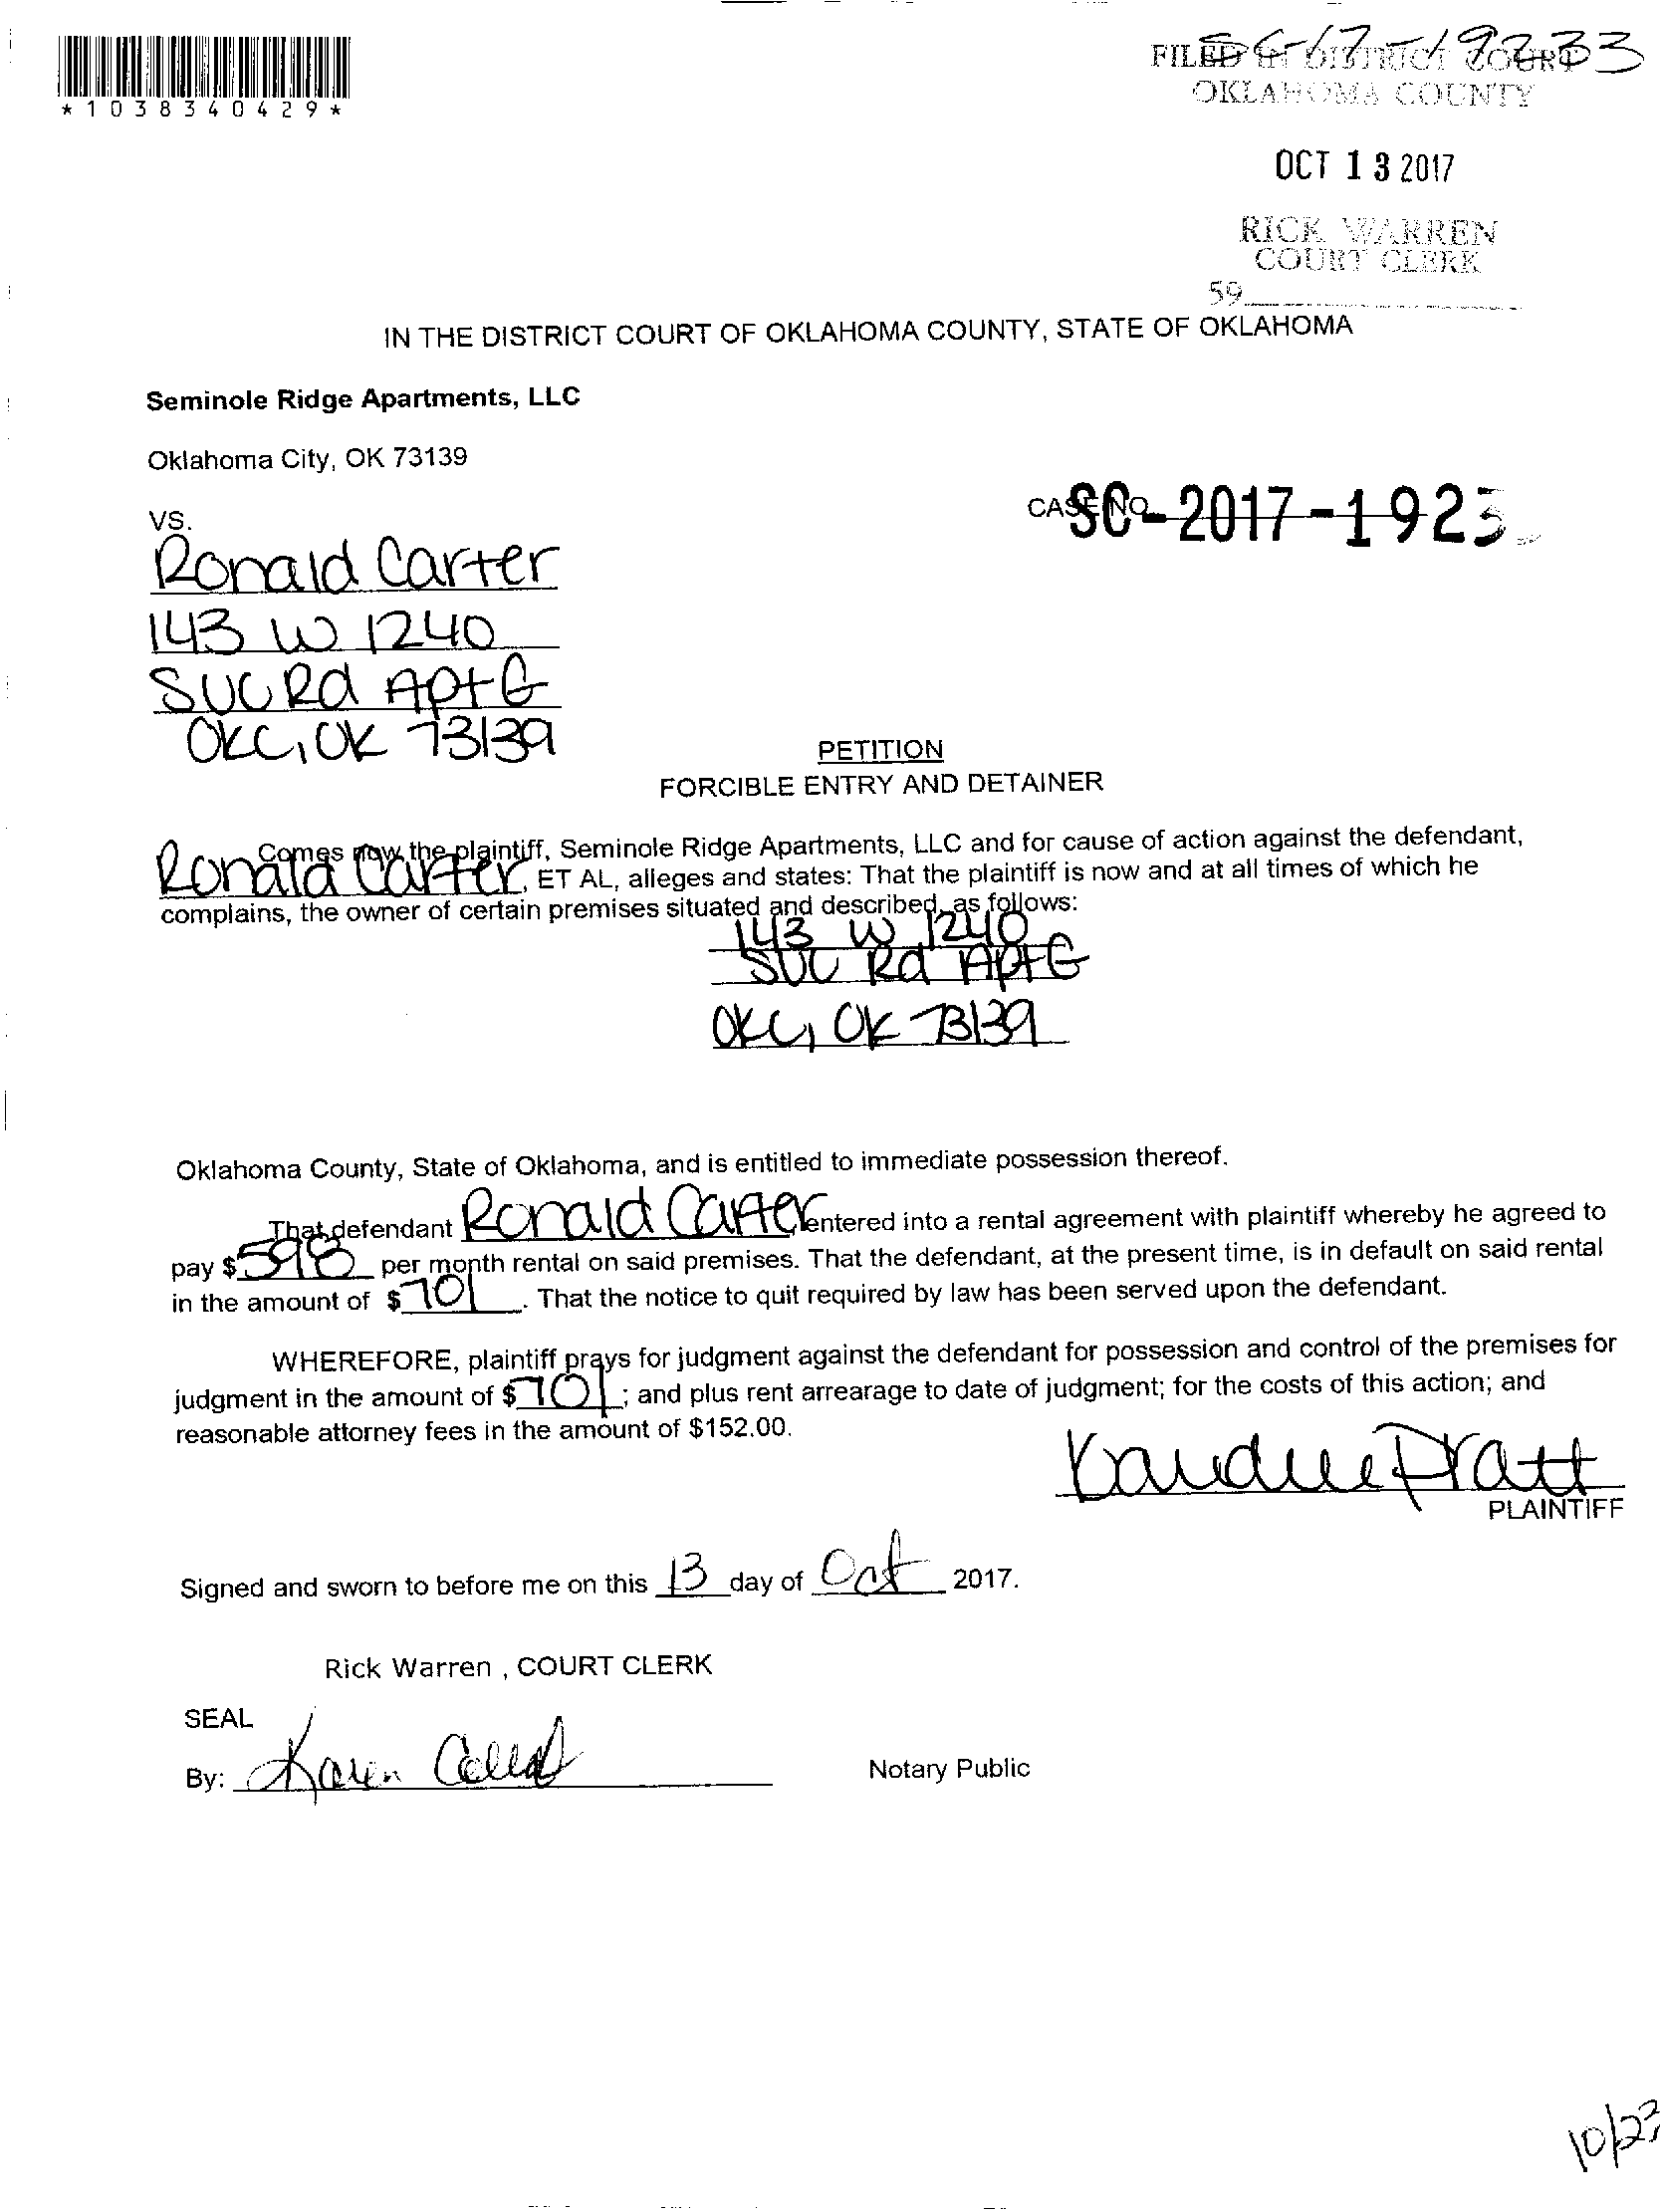 *1038340429*
SC-17-19233
FILED IN DISTRICT COURT
OKLAHOMA COUNTY
OCT 13 2017
RICK WARREN
COURT CLERK
59
IN THE DISTRICT COURT OF OKLAHOMA COUNTY, STATE OF OKLAHOMA
Seminole Ridge Apartments, LLC
Oklahoma City, OK 73139
VS.
CASE NO. SC-2017-1923
Ronald Carter
143 W 1240
SVC Rd Apt G
OKC, OK 73139
PETITION
FORCIBLE ENTRY AND DETAINER
Comes now the plaintiff, Seminole Ridge Apartments, LLC and for cause of action against the defendant,
Ronald Carter, ET AL, alleges and states: That the plaintiff is now and at all times of which he
complains, the owner of certain premises situated and described, as follows:
143 W 1240
SVC Rd Apt G
OKC, OK 73139
Oklahoma County, State of Oklahoma, and is entitled to immediate possession thereof.
That defendant Ronald Carter, entered into a rental agreement with plaintiff whereby he agreed to
pay $598 per month rental on said premises. That the defendant, at the present time, is in default on said rental
in the amount of $701. That the notice to quit required by law has been served upon the defendant.
WHEREFORE, plaintiff prays for judgment against the defendant for possession and control of the premises for
judgment in the amount of $701; and plus rent arrearage to date of judgment; for the costs of this action; and
reasonable attorney fees in the amount of $152.00.
Pratt
PLAINTIFF
Signed and sworn to before me on this 13 day of Oct 2017.
Rick Warren , COURT CLERK
SEAL
By: Karen
Notary Public
10/23